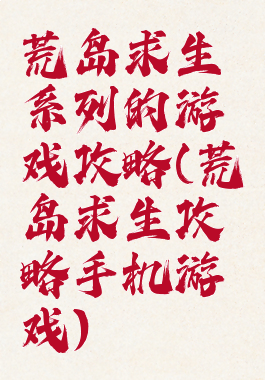 荒岛求生
系列的游
戏攻略(荒
岛求生攻
略手机游
戏)